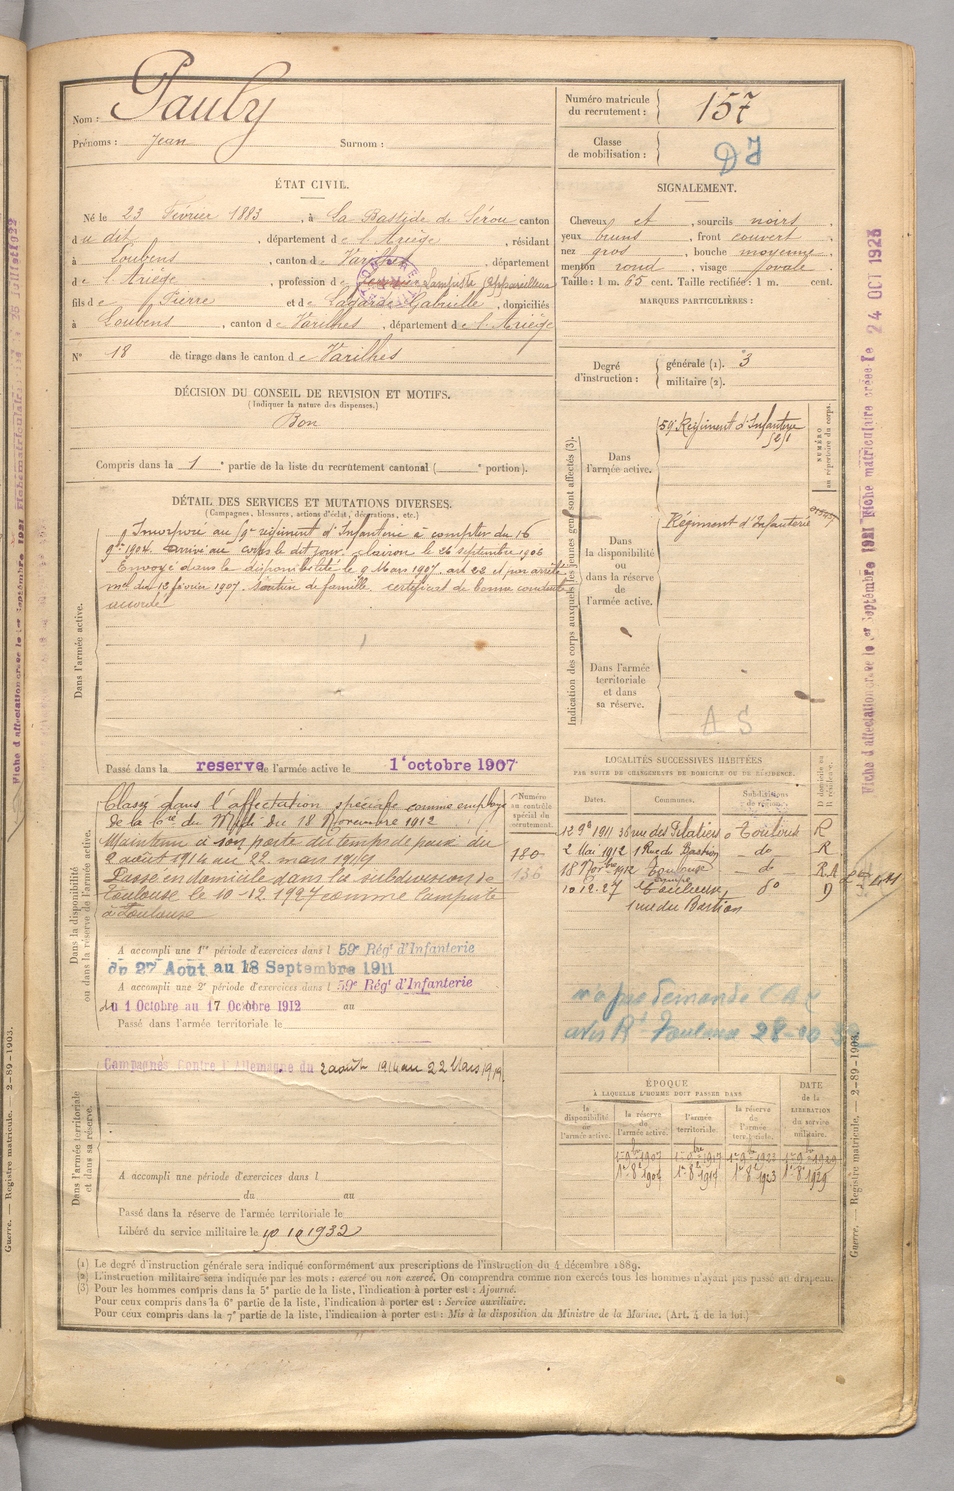 Nom : Pauly
Prénoms : Jean Surnom :
Numéro matricule du recrutement : 157
Classe de mobilisation : DJ
ÉTAT CIVIL.
Né le 23 Février 1883, à La Bastide de Sérou canton
du dit, département de l'Ariège, résidant
à Loubens, canton de Varilhes, département
de l'Ariège, profession de Lampiste (Appareilleur
fils de Pierre et de Lagarde Gabrielle, domiciliés
à Loubens, canton de Varilhes, département de l'Ariège
N° 18 de tirage dans le canton de Varilhes
SIGNALEMENT.
Cheveux et, sourcils noirs,
yeux bruns, front couvert,
nez gros, bouche moyenne,
menton rond, visage ovale.
Taille : 1 m. 65 cent. Taille rectifiée : 1 m. cent.
MARQUES PARTICULIÈRES :
Degré d'instruction : générale (1). 3
militaire (2).
DÉCISION DU CONSEIL DE REVISION ET MOTIFS.
(Indiquer la nature des dispenses.)
Bon
Compris dans la 1e partie de la liste du recrutement cantonal ( e portion).
Indication des corps auxquels les jeunes gens sont affectés (3).
NUMÉRO au répertoire du corps.
Dans l'armée active.
59e Régiment d'Infanterie
Dans la disponibilité ou dans la réserve de l'armée active.
Régiment d'Infanterie
Dans l'armée territoriale et dans sa réserve.
A S
DÉTAIL DES SERVICES ET MUTATIONS DIVERSES.
(Campagnes, blessures, actions d'éclat, décorations, etc.)
Dans l'armée active.
Incorporé au 59e régiment d'Infanterie à compter du 16
9bre 1904. arrivé au corps le dit jour. clairon le 26 septembre 1906
Envoyé dans la disponibilité le 9 Mars 1907. art 22 et par arrêté
mel du 12 février 1907. Soutien de famille. certificat de bonne conduite
accordé
Passé dans la reserve de l'armée active le 1er octobre 1907
Dans la disponibilité ou dans la réserve de l'armée active.
Classé dans l'affectation spéciale comme employé
de la Cie du Midi du 18 Novembre 1912
Maintenu à son poste du temps de paix du
2 août 1914 au 22 mars 1919
Passé en domicile dans la subdivision de
Toulouse le 10-12-1927 comme lampiste
à Toulouse
Numéro au contrôle spécial du recrutement.
180
136
A accompli une 1re période d'exercices dans l 59e Régt d'Infanterie
du 27 Aout au 18 Septembre 1911
A accompli une 2e période d'exercices dans l 59e Régt d'Infanterie
du 1 Octobre au 17 Octobre 1912 au
Passé dans l'armée territoriale le
LOCALITÉS SUCCESSIVES HABITÉES
PAR SUITE DE CHANGEMENTS DE DOMICILE OU DE RÉSIDENCE.
Dates. Communes. Subdivisions de régions. D domicile ou R résidence.
12 9e 1911 36 rue des Filatiers Toulouse R
2 Mai 1912 1 Rue du Bastion do R
18 Novbre 1912 Toulouse do R.A
10 12-27 Toulouse, do D
1 rue du Bastion
n'a pas demandé
avis Rt Toulouse 28-10 32
Dans l'armée territoriale et dans sa réserve.
Campagnes Contre l'Allemagne du 2 août 1914 au 22 Mars 1919.
A accompli une période d'exercices dans l
du au
Passé dans la réserve de l'armée territoriale le
Libéré du service militaire le 10 10 1932
ÉPOQUE
À LAQUELLE L'HOMME DOIT PASSER DANS
la disponibilité de l'armée active. la réserve de l'armée active. l'armée territoriale. la réserve de l'armée territoriale. DATE de la LIBÉRATION du service militaire.
1er 9bre 1907 1er 9bre 1917 1er 9bre 1923 1er 9bre 1929
1er 8e 1907 1er 8e 1917 1er 8e 1923 1er 8e 1929
(1) Le degré d'instruction générale sera indiqué conformément aux prescriptions de l'instruction du 4 décembre 1889.
(2) L'instruction militaire sera indiquée par les mots : exercé ou non exercé. On comprendra comme non exercés tous les hommes n'ayant pas passé au drapeau.
(3) Pour les hommes compris dans la 5e partie de la liste, l'indication à porter est : Ajourné.
Pour ceux compris dans la 6e partie de la liste, l'indication à porter est : Service auxiliaire.
Pour ceux compris dans la 7e partie de la liste, l'indication à porter est : Mis à la disposition du Ministre de la Marine. (Art. 4 de la loi.)
Fiche d'affectation créée le 1er Septembre 1921 Fiche matriculaire créée le 24 OCT 1923
Guerre. — Registre matricule. — 2-89-1903.
Guerre. — Registre matricule. — 2-89-1903.